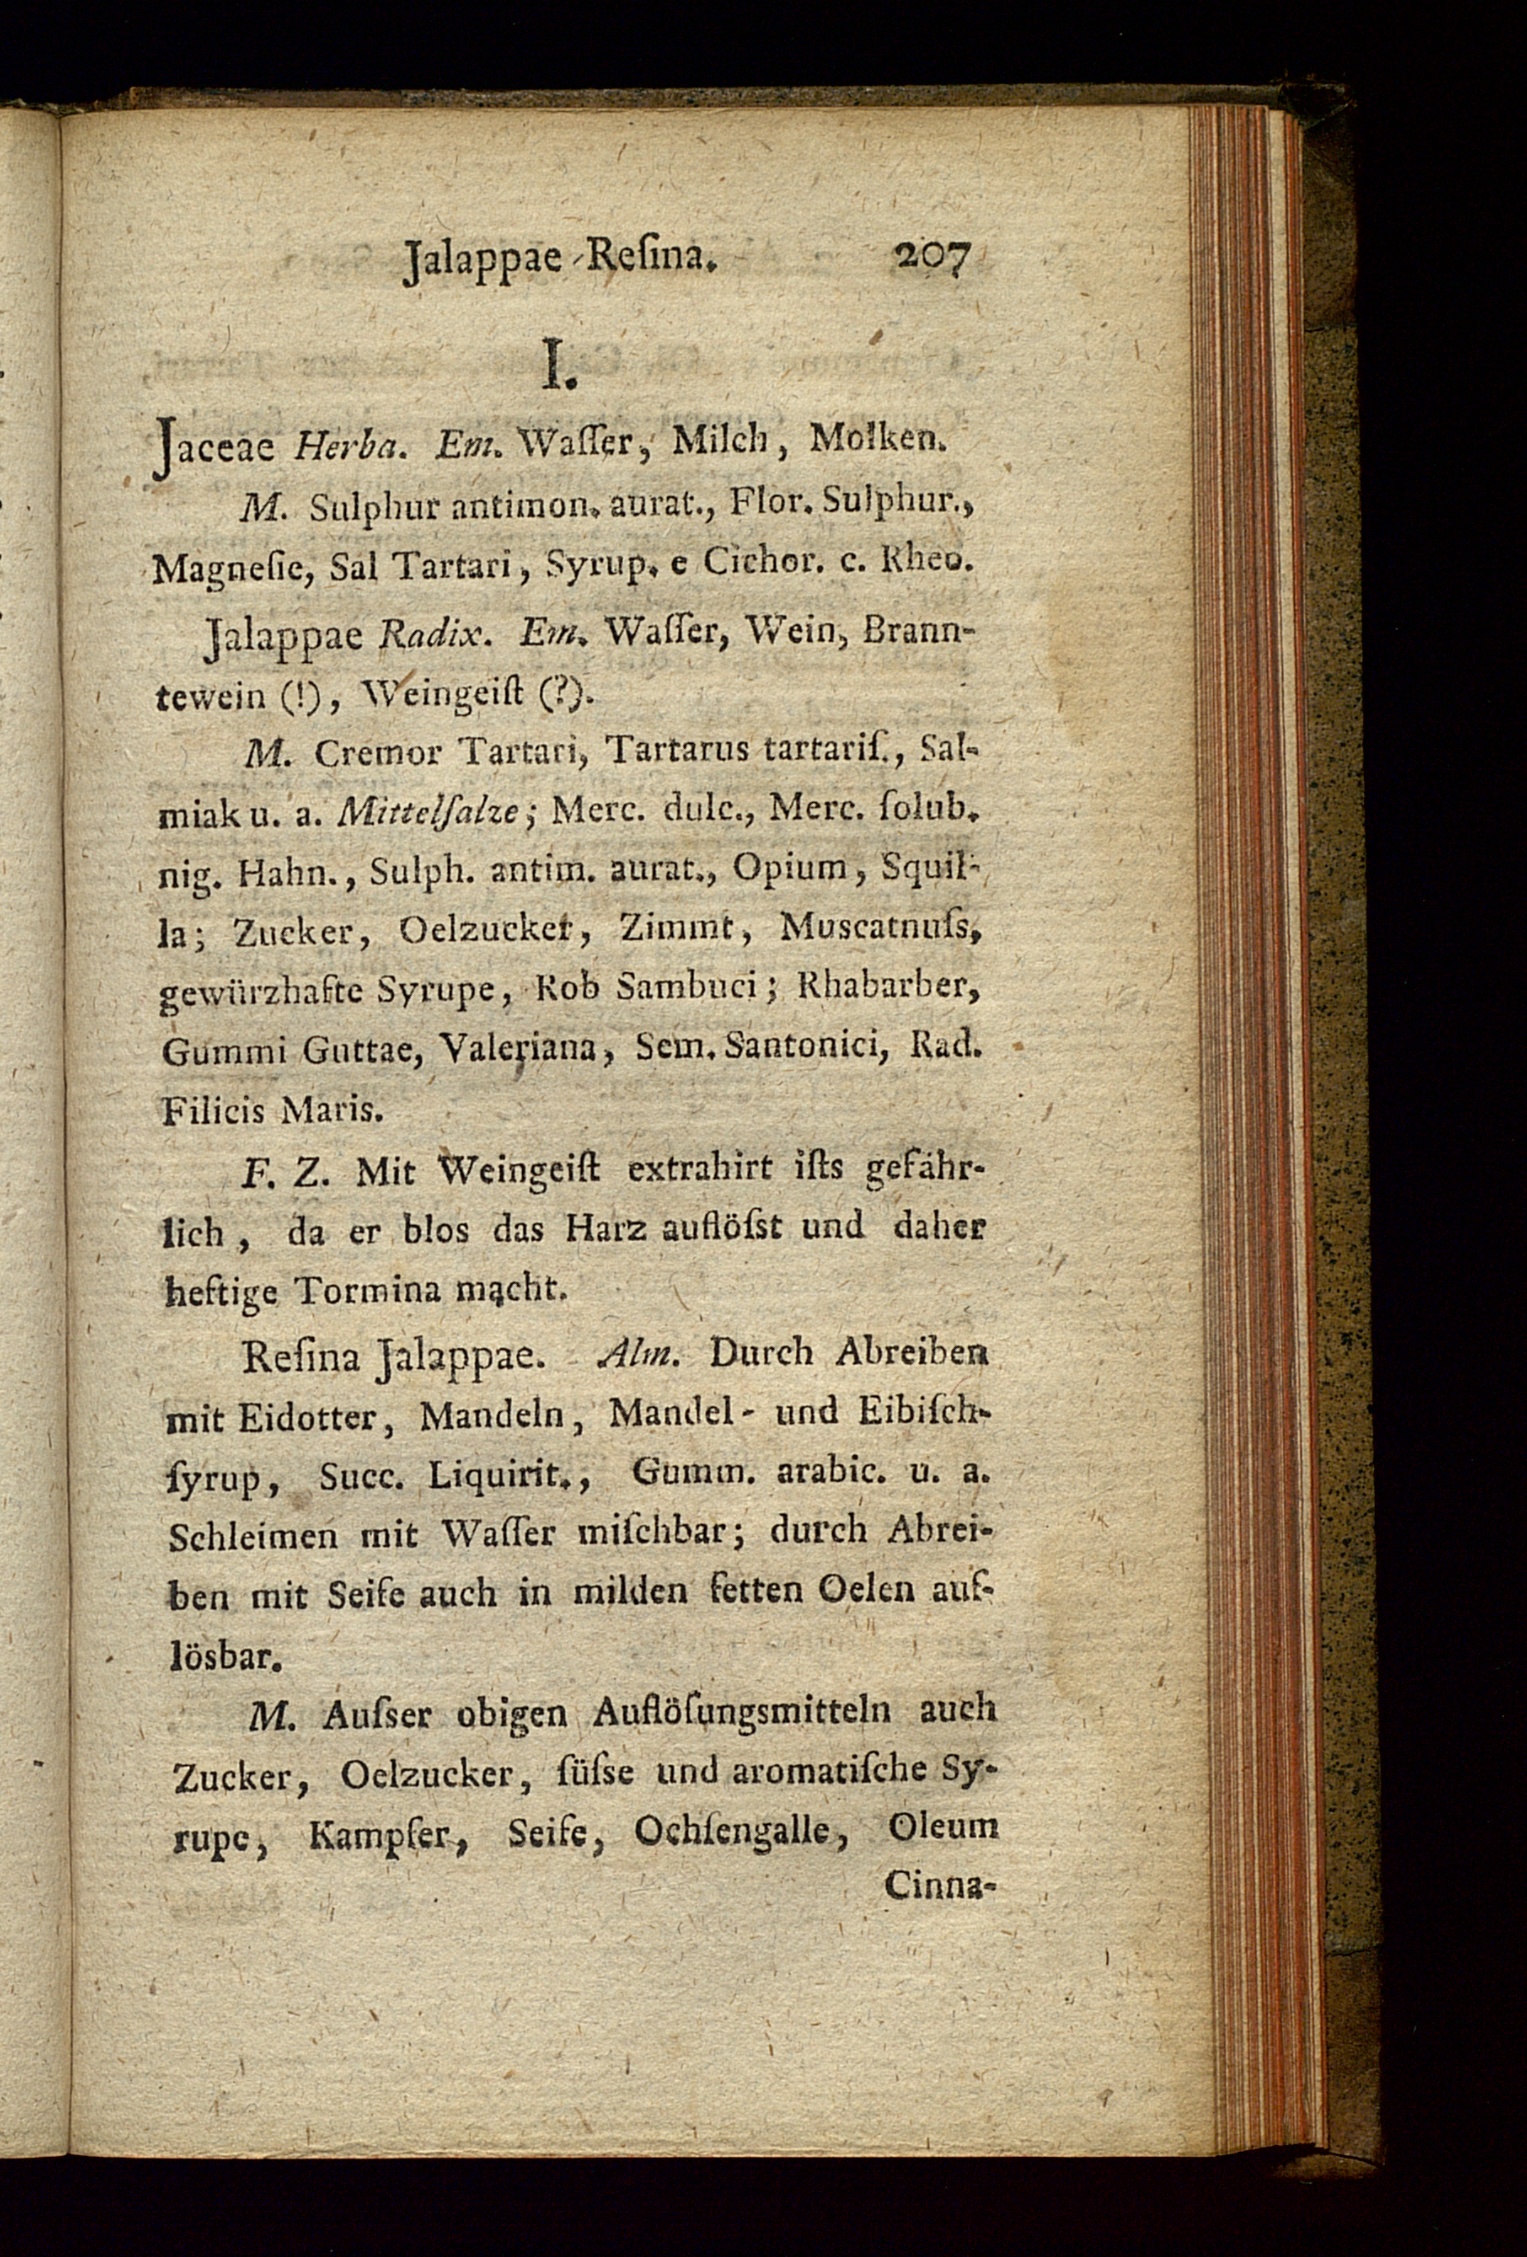 Jalappae Reſina. 207
I.
Jaceae Herba. Em. Waſſer, Milch, Molken.
M. Sulphur antimon. aurat., Flor. Sulphur.,
Magneſie, Sal Tartari, Syrup. e Cichor. c. Rheo.
Jalappae Radix. Em. Waſſer, Wein, Brann-
tewein (!), Weingeiſt (?).
M. Cremor Tartari, Tartarus tartariſ., Sal-
miak u. a. Mittelſalze; Merc. dulc., Merc. ſolub.
nig. Hahn., Sulph. antim. aurat., Opium, Squil-
la; Zucker, Oelzucker, Zimmt, Muscatnuſs,
gewürzhafte Syrupe, Rob Sambuci; Rhabarber,
Gummi Guttae, Valeriana, Sem. Santonici, Rad.
Filicis Maris.
F. Z. Mit Weingeiſt extrahirt iſts gefähr-
lich, da er blos das Harz auflöſst und daher
heftige Tormina macht.
Reſina Jalappae. Alm. Durch Abreiben
mit Eidotter, Mandeln, Mandel- und Eibiſch-
ſyrup, Succ. Liquirit., Gumm. arabic. u. a.
Schleimen mit Waſſer miſchbar; durch Abrei-
ben mit Seife auch in milden fetten Oelen auf-
lösbar.
M. Auſser obigen Auflöſungsmitteln auch
Zucker, Oelzucker, ſüſse und aromatiſche Sy-
rupe, Kampfer, Seife, Ochſengalle, Oleum
Cinna-